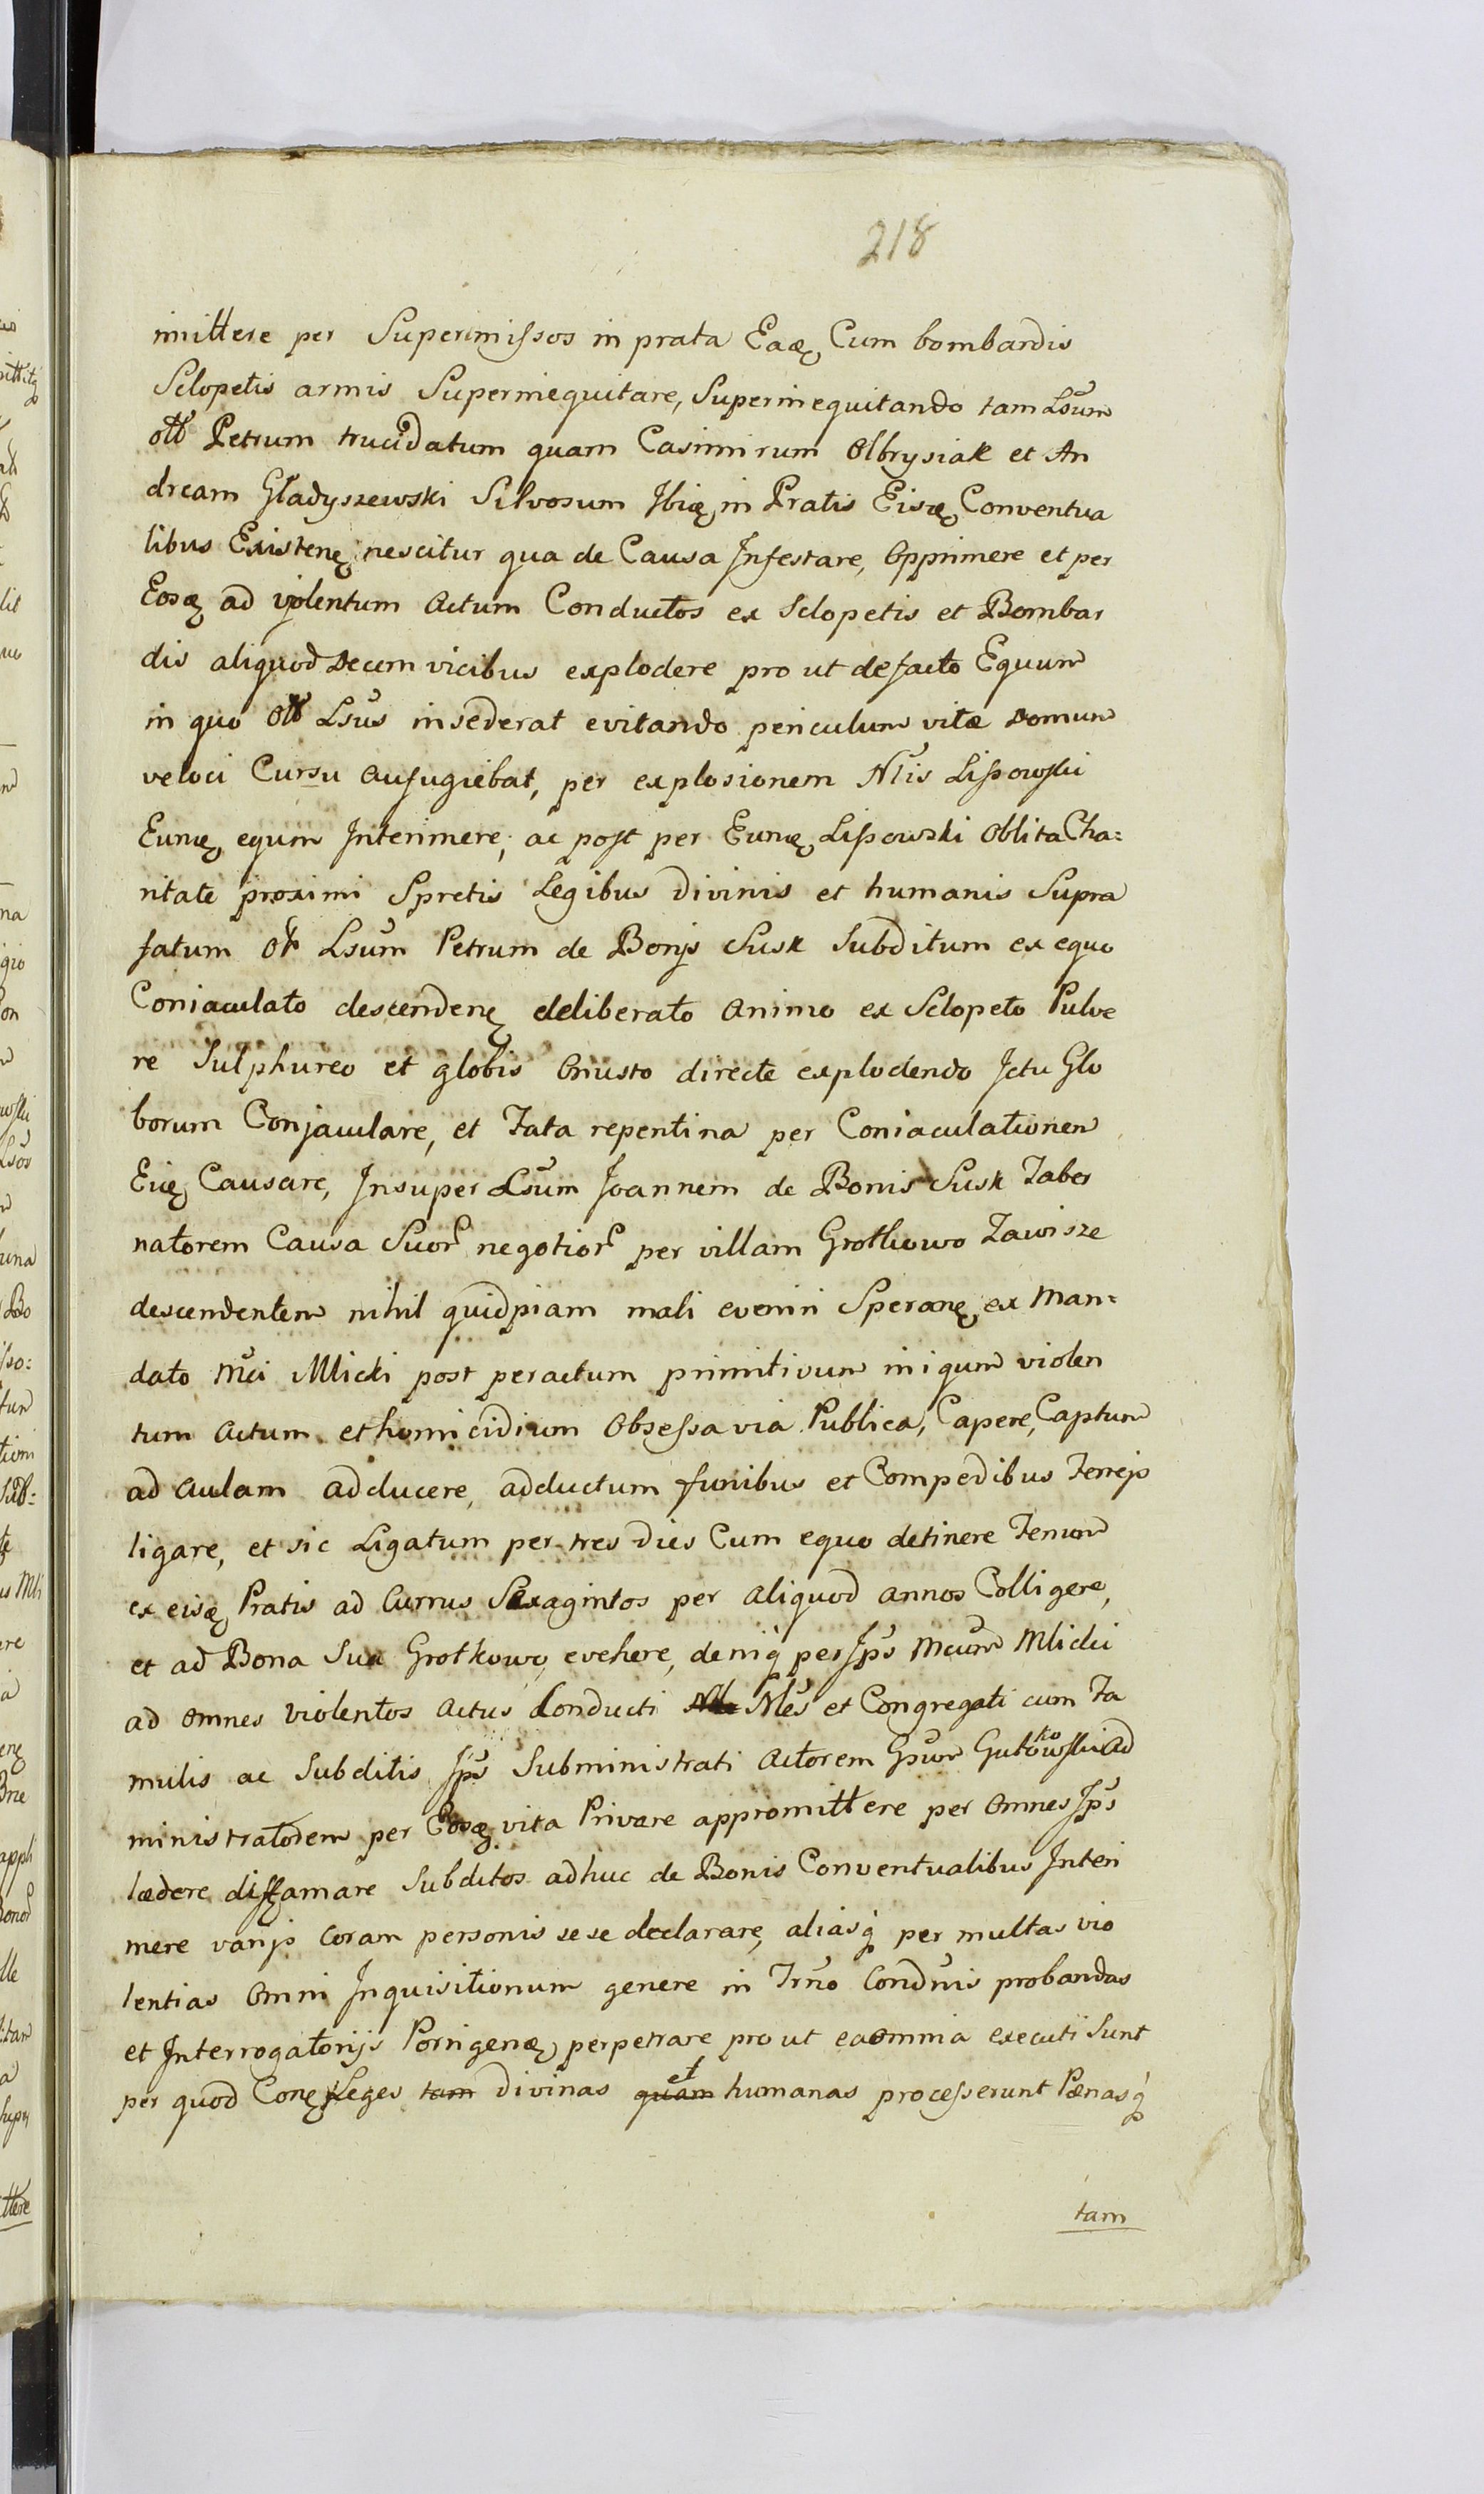 218
mittere per Superimissos in prata Eaę Cum bombardis
Sclopetis armis Superinequitare, Superinequitando tam Lsum
ott Petrum trucidatum quam Casimirum Olbrysiak et An
dream Gładyszewski Silvosum Ibię in Pratis Eisę Conventua
libus Existenę nescitur qua de Causa Infestare, Opprimere et per
Eosę ad violentum Actum Conductos ex Sclopetis et Bombar
dis aliquod Decem vicibus explodere pro ut defacto Equum
in quo Ott Lsus insederat evitando periculum vitæ Domum
veloci Cursu aufugiebat, per explosionem Nlis Lissowski
Eumę equm Interimere, ac post per Eumę Lissowski Oblita Cha=
ritate proximi Spretis Legibus Divinis et humanis Supra
fatum Ott Lsum Petrum de Bonjs Susk Subditum ex equo
Coniaculato descendenę deliberato Animo ex Sclopeto Pulve
re Sulphureo et globis Onusto directe explodendo Ictu Glo
borum Conjaculare, et Fata repentina per Coniaculationem
Eię Causare, Insuper Lsum Joannem de Bonis Susk Taber
natorem Causa Suor negotior per villam Grotkowo Zawisze
descendentem nihil quidpiam mali eveniri Speranę ex Man=
dato Mci Mlicki post peractum primitivum iniqum violen
tum Actum et homicidium Obsessa via Publica, Capere, Captum
ad Aulam adducere, adductum funibus et Compedibus Ferrejs
ligare, et sic Ligatum per tres Dies Cum equo detinere Fenum
ex eisę Pratis ad Currus Sexagintos per Aliquod Annos Colligere,
et ad Bona Sua Grotkowo, evehere, deniq per Ips Mcum Mlicki
ad Omnes violentos Actus Conducti Nles et Congregati cum Fa
mulis ac Subditis Ips Subministrati Actorem Gsum Gutkowski Ad
ministratorem per Eosę vita Privare appromittere per Omnes Ips
lædere diffamare Subditos adhuc de Bonis Conventualibus Interi
mere varijs Coram personis sese declarare, aliasq per multas vio
lentias Omni Inquisitionum genere in Trno Condnis probandas
et Interrogatorijs Porrigenę perpetrare pro ut ea Omnia executi Sunt
per quod Conę Leges tam Divinas quam et humanas processerunt Pænasq
tam